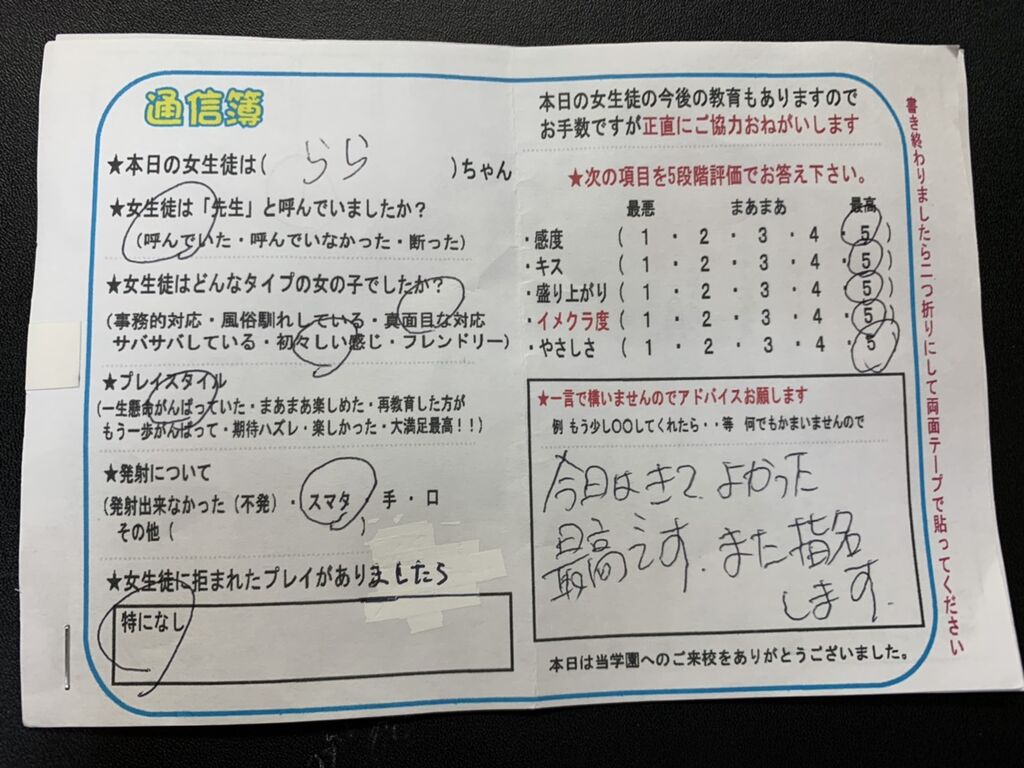 通信簿
★本日の女生徒は( らら )ちゃん
★女生徒は「先生」と呼んでいましたか？
(呼んでいた・呼んでいなかった・断った)
★女生徒はどんなタイプの女の子でしたか？
(事務的対応・風俗馴れしている・真面目な対応
サバサバしている・初々しい感じ・フレンドリー)
★プレイスタイル
(一生懸命がんばっていた・まあまあ楽しめた・再教育した方が
もう一歩がんばって・期待ハズレ・楽しかった・大満足最高！！)
★発射について
(発射出来なかった (不発)・スマタ・手・口
その他 ( )
★女生徒に拒まれたプレイがありましたら
特になし
本日の女生徒の今後の教育もありますので
お手数ですが正直にご協力おねがいします
★次の項目を5段階評価でお答え下さい。
最悪 まあまあ 最高
・感度 ( 1 ・ 2 ・ 3 ・ 4 ・ 5 )
・キス ( 1 ・ 2 ・ 3 ・ 4 ・ 5 )
・盛り上がり ( 1 ・ 2 ・ 3 ・ 4 ・ 5 )
・イメクラ度 ( 1 ・ 2 ・ 3 ・ 4 ・ 5 )
・やさしさ ( 1 ・ 2 ・ 3 ・ 4 ・ 5 )
★一言で構いませんのでアドバイスお願します
例 もう少し〇〇してくれたら・・等 何でもかまいませんので
今日はきて、よかった
最高です. また指名
します.
本日は当学園へのご来校をありがとうございました。
書き終わりましたら二つ折りにして両面テープで貼ってください